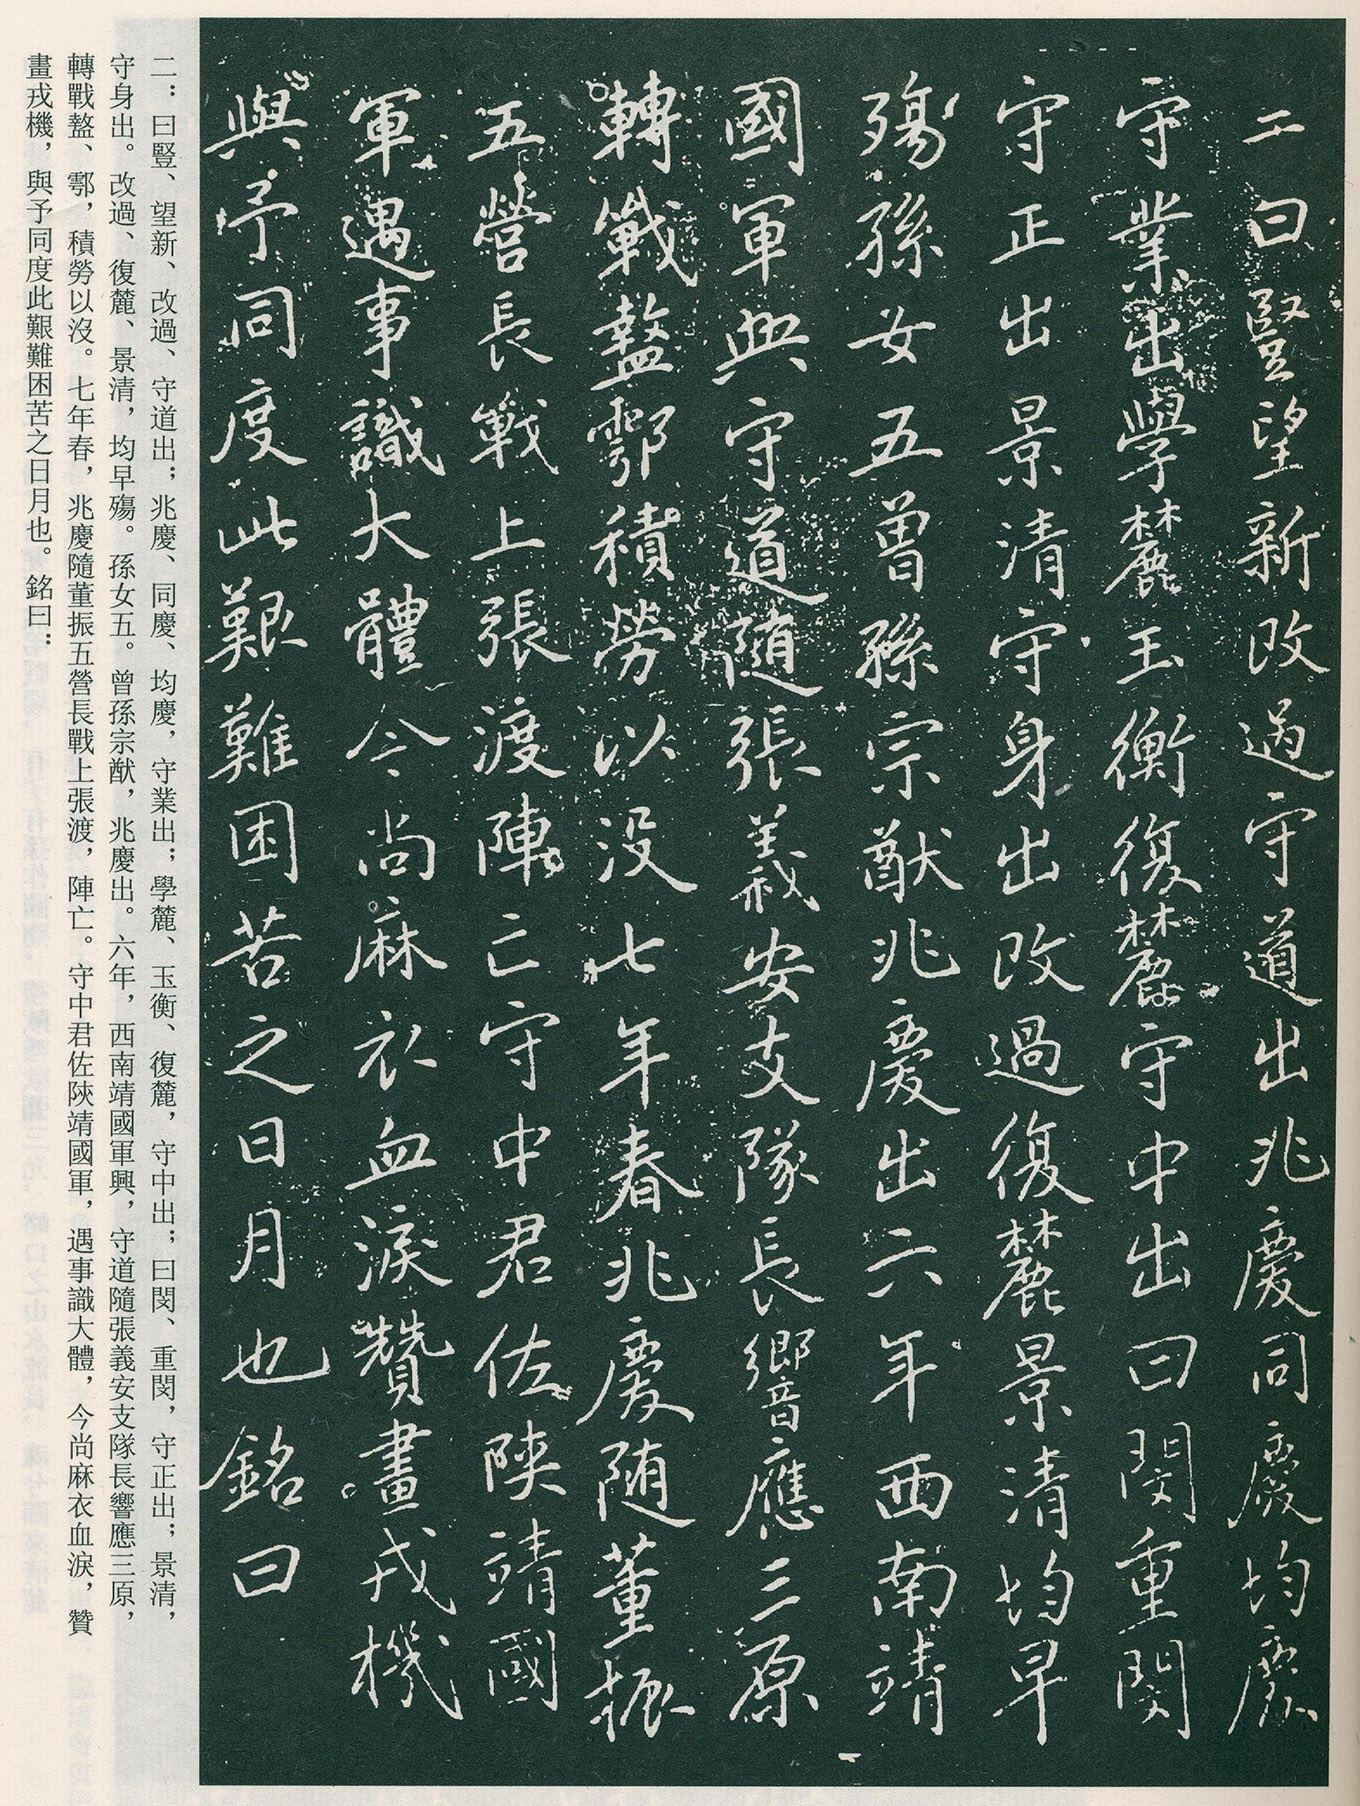 二曰豎望新改過守道出兆慶同慶均慶
守業出學麓玉衡復麓守中出曰閔重閔
守正出景清守身出改過復麓景清均早
殤孫女五曾孫宗猷兆慶出六年西南靖
國軍興守道随張義安支隊長響應三原
轉戰盩鄠積勞以没七年春兆慶随董振
五營長戰上張渡陣亡守中君佐陝靖國
軍遇事識大體今尚麻衣血淚贊畫戎機
與予同度此艱難困苦之日月也銘曰
二：曰豎、望新、改過、守道出；兆慶、同慶、均慶，守業出；學麓、玉衡、復麓，守中出；曰閔、重閔，守正出；景清，
守身出。改過、復麓、景清，均早殤。孫女五。曾孫宗猷，兆慶出。六年，西南靖國軍興，守道隨張義安支隊長響應三原，
轉戰盩、鄠，積勞以沒。七年春，兆慶隨董振五營長戰上張渡，陣亡。守中君佐陝靖國軍，遇事識大體，今尚麻衣血淚，贊
畫戎機，與予同度此艱難困苦之日月也。銘曰：